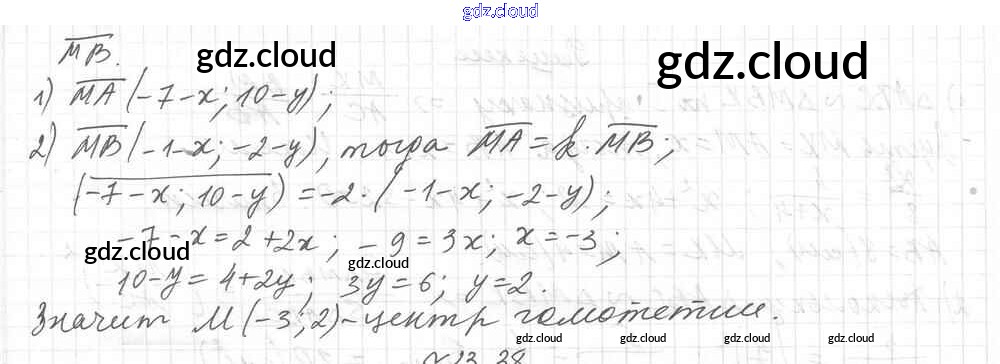 gdz.cloud
gdz.cloud
MB.
gdz.cloud
gdz.cloud
1) MA (-7-x; 10-y);
2) MB (-1-x; -2-y), тогда MA = k·MB;
(-7-x; 10-y) = -2·(-1-x; -2-y);
-7-x = 2+2x; -9 = 3x; x = -3;
gdz.cloud
gdz.cloud
10-y = 4+2y; 3y = 6; y = 2.
Значит M (-3; 2) - центр гомотетии.
gdz.cloud
gdz.cloud
gdz.cloud